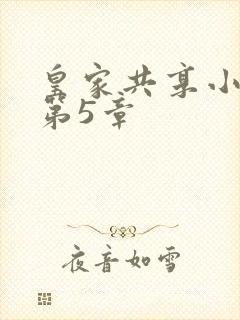 皇家共享小
第5章
夜音如雪